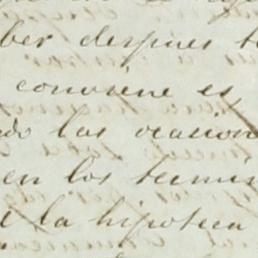 ber despues
conviene es
do las ocasion
en los termin
la hipoteca